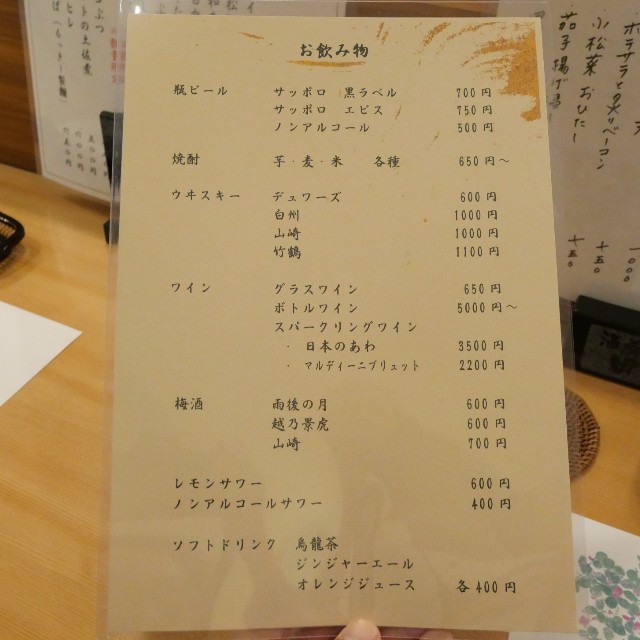 お飲み物
瓶ビール サッポロ 黒ラベル 700円
サッポロ エビス 750円
ノンアルコール 500円
焼酎 芋・麦・米 各種 650円～
ウヰスキー デュワーズ 600円
白州 1000円
山崎 1000円
竹鶴 1100円
ワイン グラスワイン 650円
ボトルワイン 5000円～
スパークリングワイン
・ 日本のあわ 3500円
・ マルディーニブリュット 2200円
梅酒 雨後の月 600円
越乃景虎 600円
山崎 700円
レモンサワー 600円
ノンアルコールサワー 400円
ソフトドリンク 烏龍茶
ジンジャーエール
オレンジジュース 各400円
小松菜おひたし